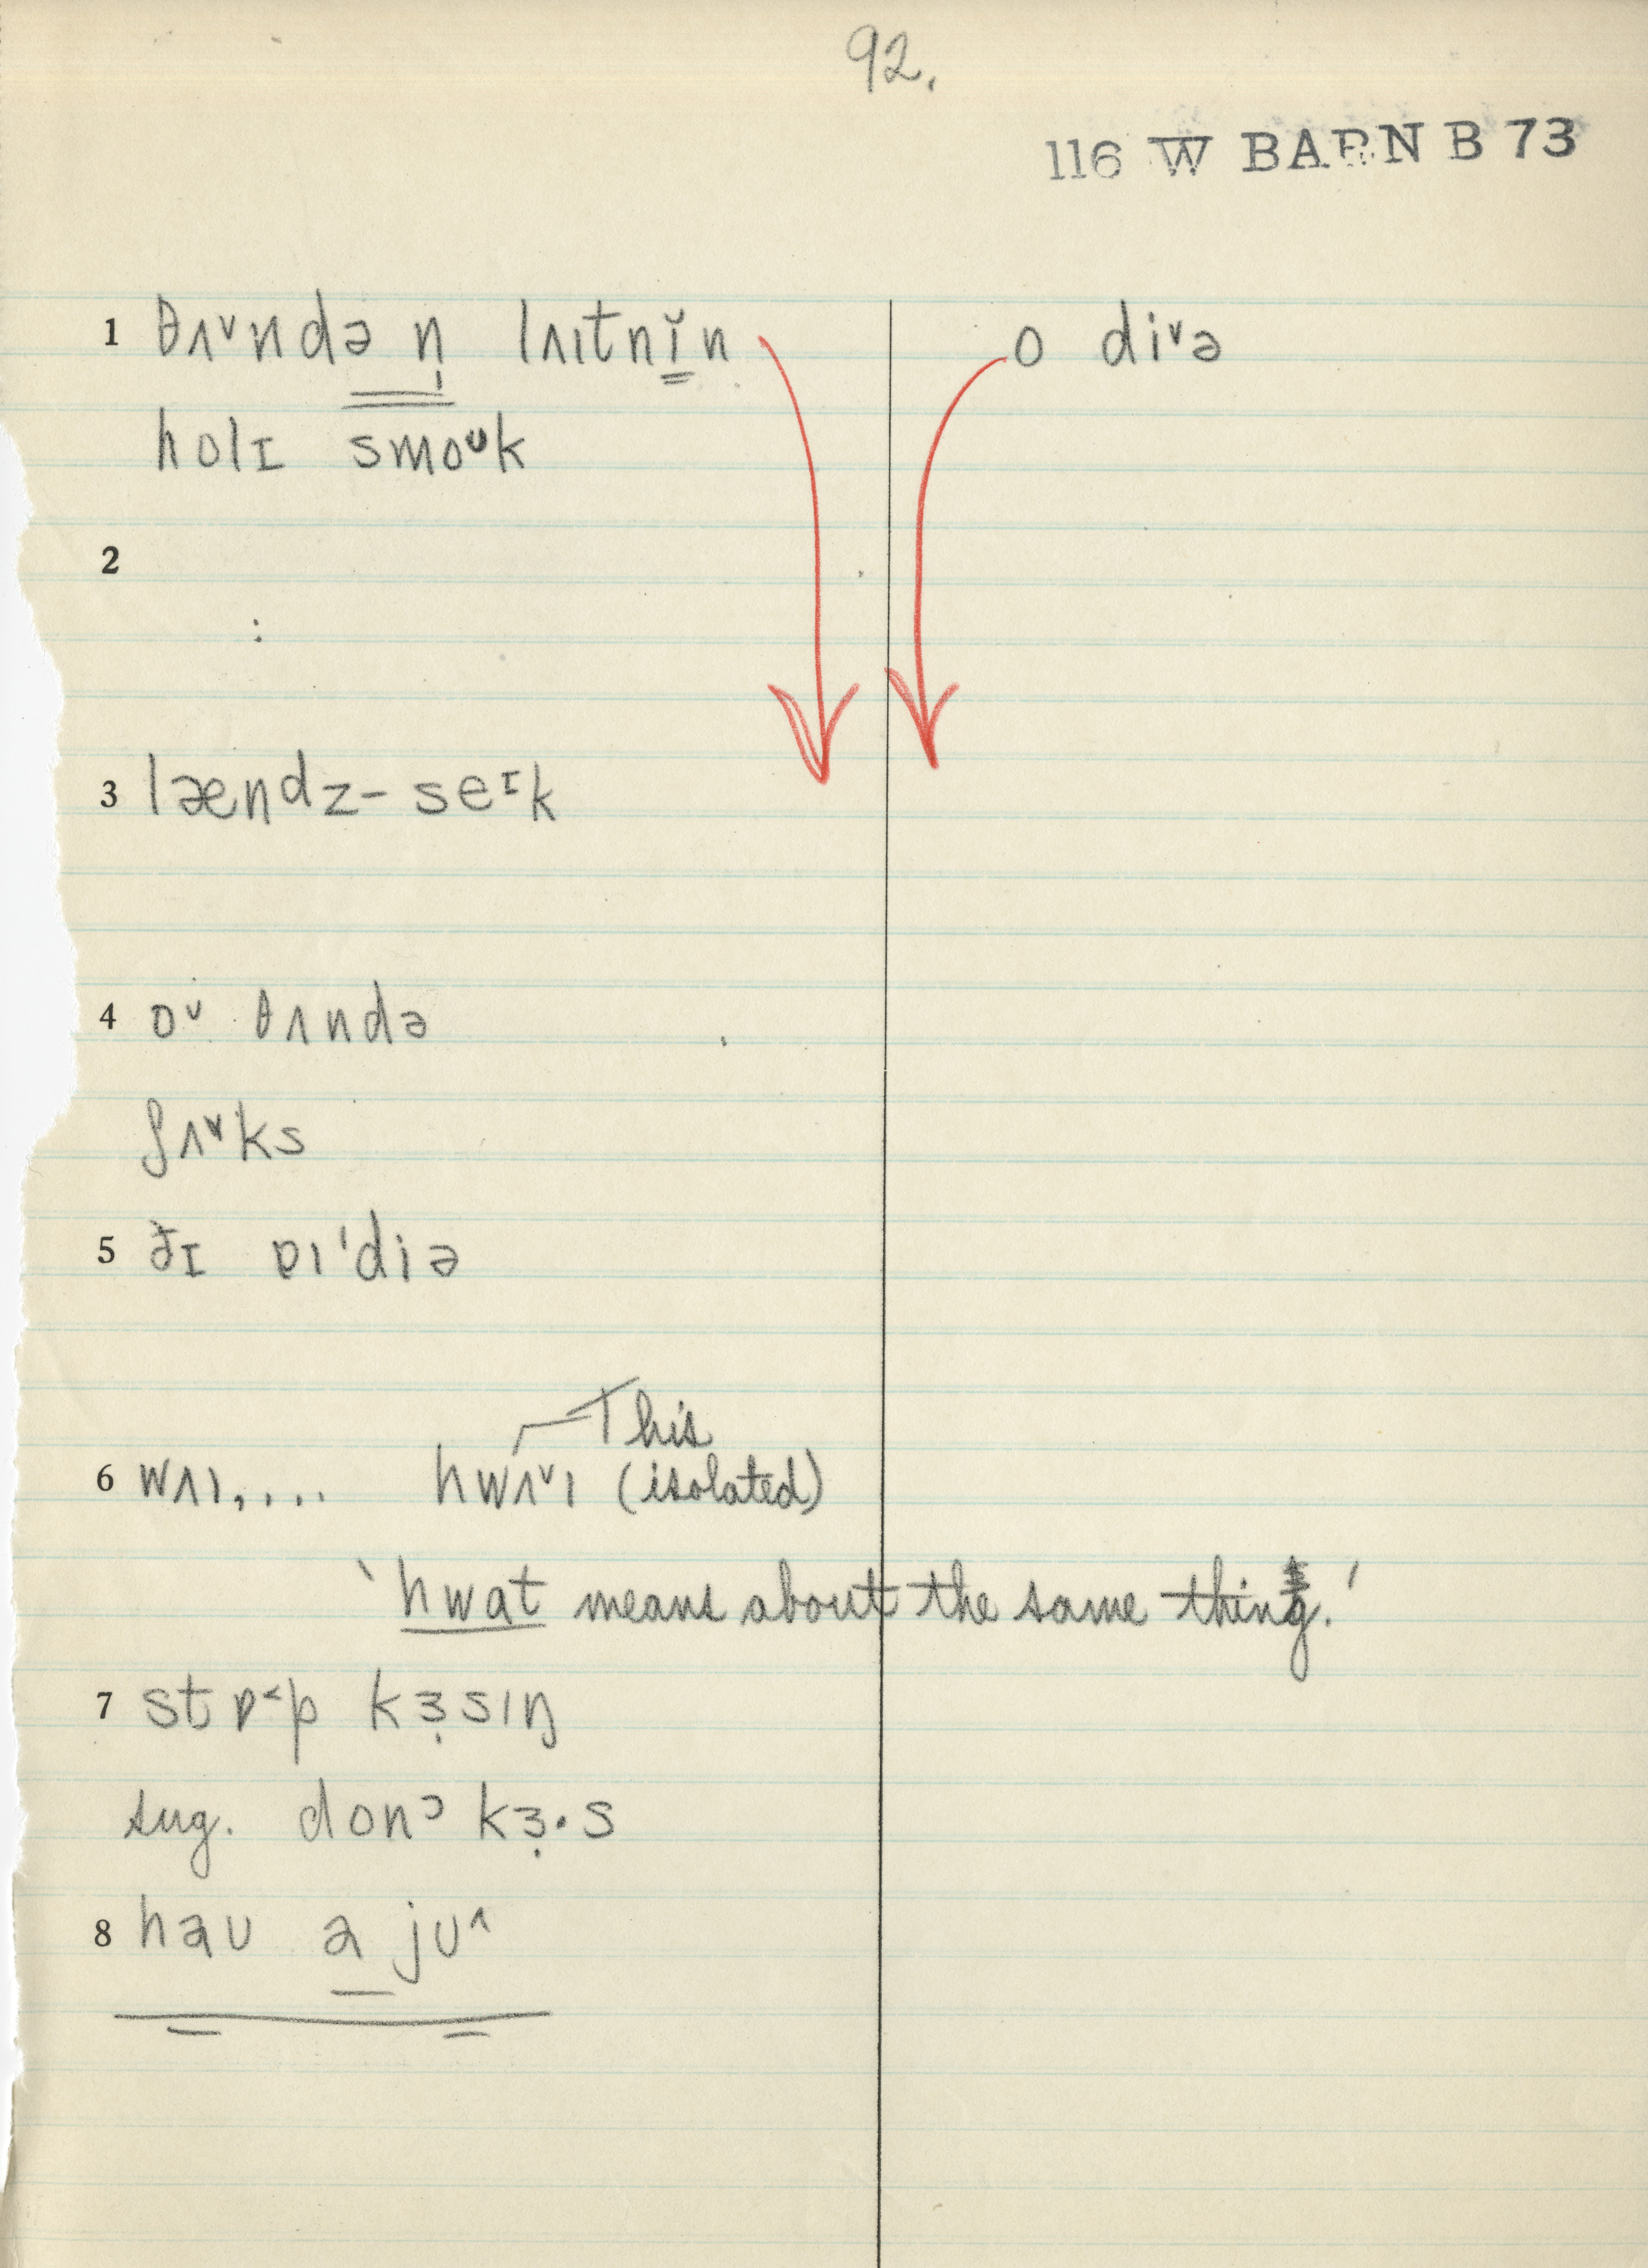 92.
116 W BARN B 73
1 θʌ˅ndə n̩ lʌɪtnɪ̆n o di˅ə
holɪ smoᴜk
2
:
3 lændz- seᶦk
4 o˅ θʌndə
ʃʌ˅ks
5 ðɪ ɒɪ'diə
This
6 wʌɪ, ... hwʌ˅ɪ (isolated)
'hwɑt means about the same thing.'
7 stɒ˂p kɜ̣sɪŋ
sug. donᵓ kɜ̣·s
8 haᴜ a jᴜ˄